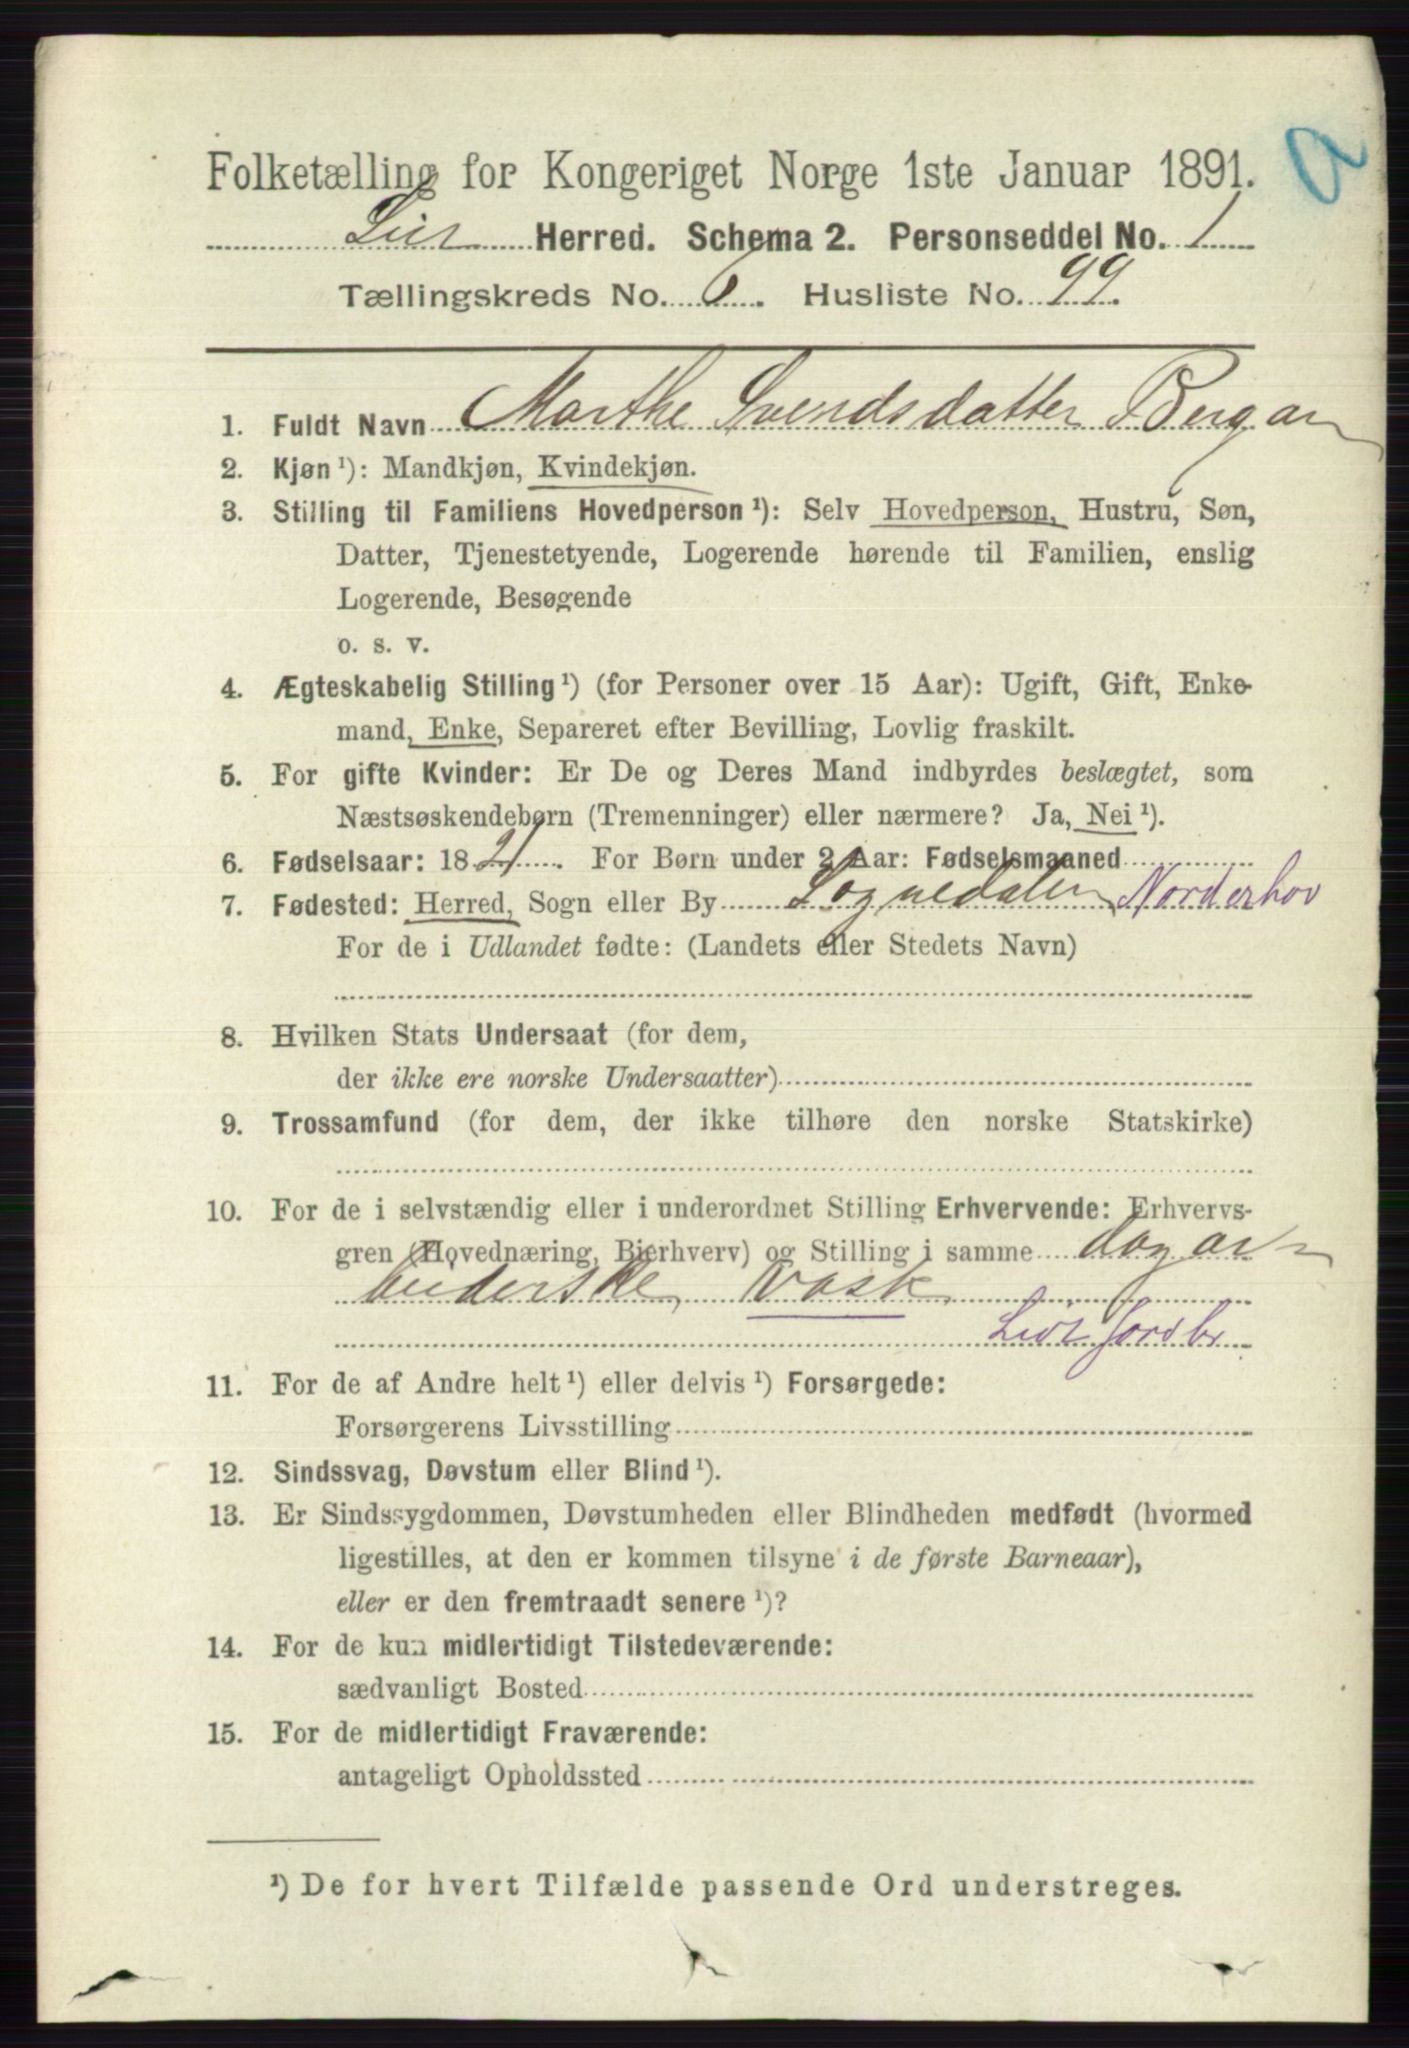 a
Folketælling for Kongeriget Norge 1ste Januar 1891.
Lier Herred. Schema 2. Personseddel No. 1
Tællingskreds No. 6. Husliste No. 99.
1. Fuldt Navn Marthe Svendsdatter Bergan
2. Kjøn¹): Mandkjøn, Kvindekjøn.
3. Stilling til Familiens Hovedperson¹): Selv Hovedperson, Hustru, Søn,
Datter, Tjenestetyende, Logerende hørende til Familien, enslig
Logerende, Besøgende
o. s. v.
4. Ægteskabelig Stilling¹) (for Personer over 15 Aar): Ugift, Gift, Enke-
mand, Enke, Separeret efter Bevilling, Lovlig fraskilt.
5. For gifte Kvinder: Er De og Deres Mand indbyrdes beslægtet, som
Næstsøskendebørn (Tremenninger) eller nærmere? Ja, Nei¹).
6. Fødselsaar: 1821. For Børn under 2 Aar: Fødselsmaaned
7. Fødested: Herred, Sogn eller By Sognedalen Norderhov
For de i Udlandet fødte: (Landets eller Stedets Navn)
8. Hvilken Stats Undersaat (for dem,
der ikke ere norske Undersaatter)
9. Trossamfund (for dem, der ikke tilhøre den norske Statskirke)
10. For de i selvstændig eller i underordnet Stilling Erhvervende: Erhvervs-
gren (Hovednæring, Bierhverv) og Stilling i samme dagar-
beiderske, Vask
Lidt Jordbr
11. For de af Andre helt¹) eller delvis¹) Forsørgede:
Forsørgerens Livsstilling
12. Sindssvag, Døvstum eller Blind¹).
13. Er Sindssygdommen, Døvstumheden eller Blindheden medfødt (hvormed
ligestilles, at den er kommen tilsyne i de første Barneaar),
eller er den fremtraadt senere¹)?
14. For de kun midlertidigt Tilstedeværende:
sædvanligt Bosted
15. For de midlertidigt Fraværende:
antageligt Opholdssted
¹) De for hvert Tilfælde passende Ord understreges.